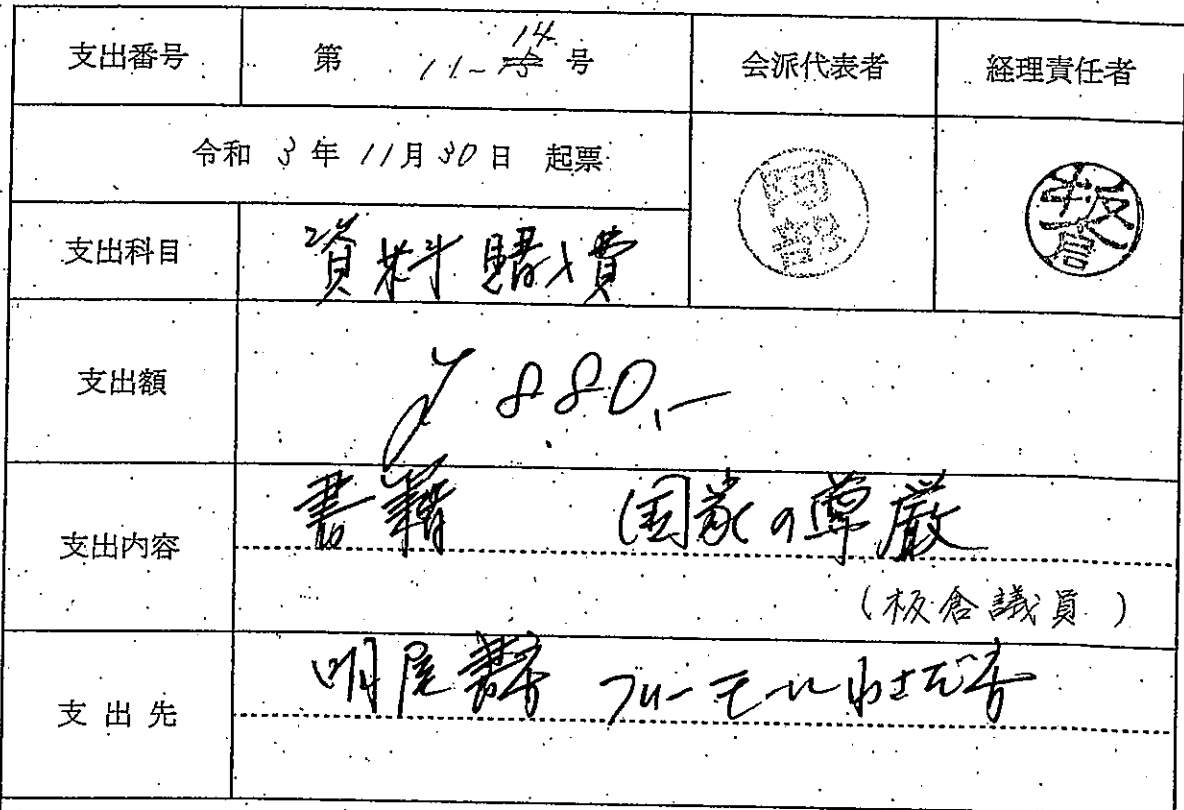 支出番号 第 11-14 号 会派代表者 経理責任者
令和 3 年 11月 30日 起票
岡部
板倉
支出科目 資料購入費
支出額 ¥880.-
支出内容 書籍 国家の尊厳
(板倉議員)
支出先 明屋書店 フレスポ